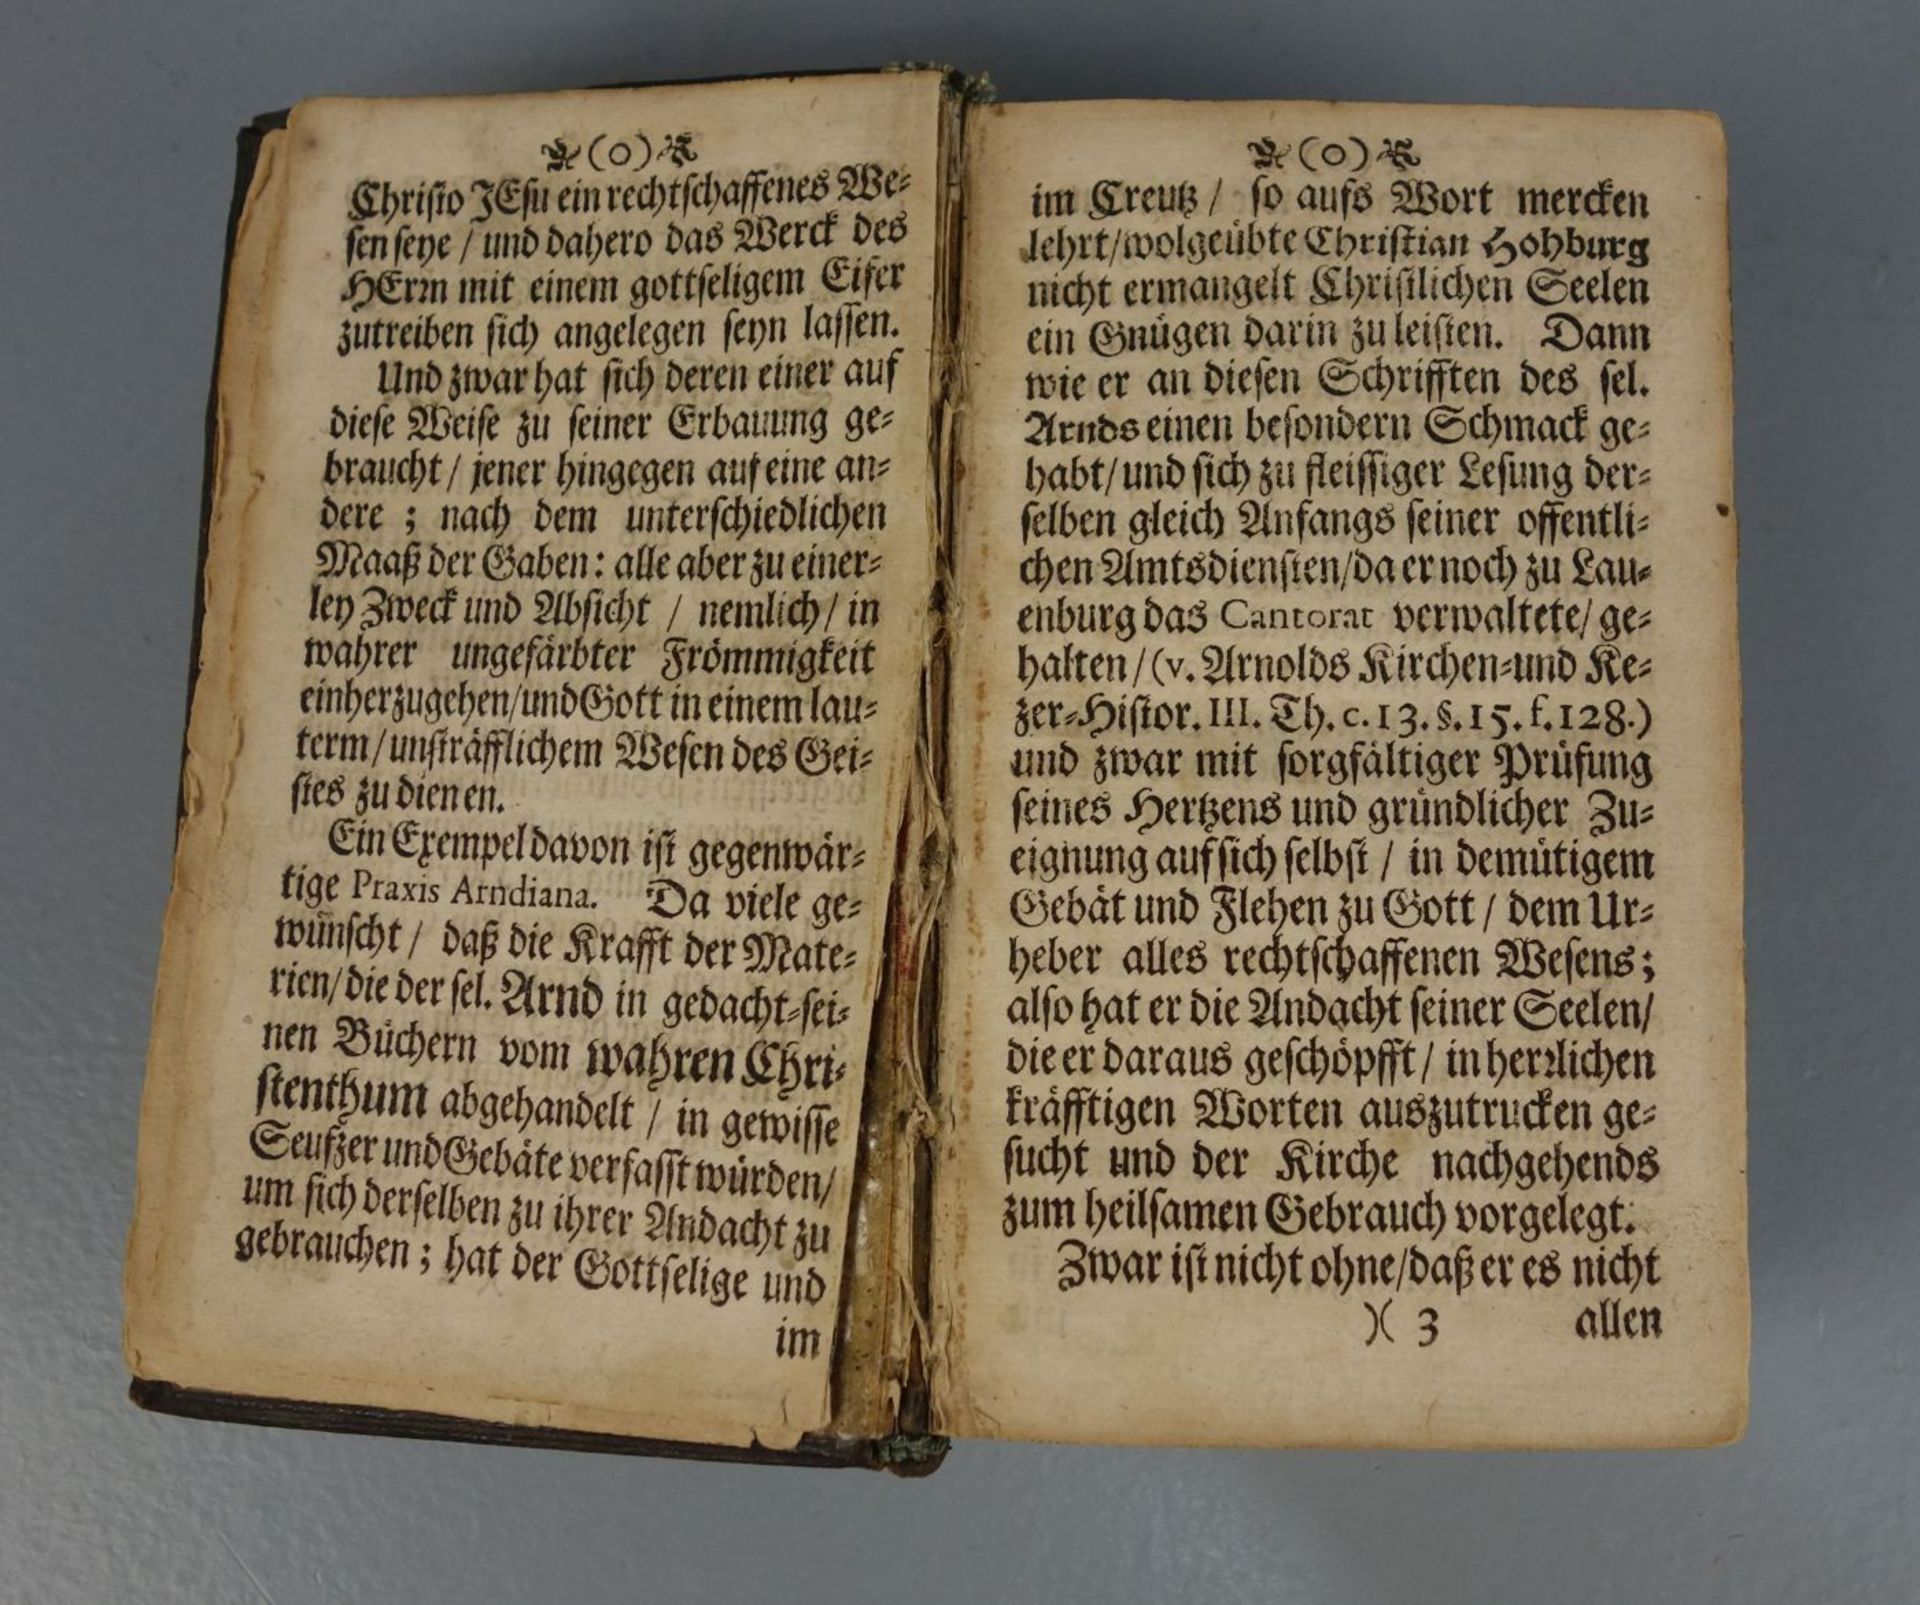 (o)
Christo JEsu ein rechtschaffenes We-
sen seye / und dahero das Werck des
HErrn mit einem gottseligem Eifer
zutreiben sich angelegen seyn lassen.
Und zwar hat sich deren einer auf
diese Weise zu seiner Erbauung ge-
braucht / jener hingegen auf eine an-
dere ; nach dem unterschiedlichen
Maaß der Gaben : alle aber zu einer-
ley Zweck und Absicht / nemlich / in
wahrer ungefärbter Frömmigkeit
einherzugehen / und Gott in einem lau-
term / unsträfflichem Wesen des Gei-
stes zu dienen.
Ein Exempel davon ist gegenwär-
tige Praxis Arndiana. Da viele ge-
wünscht / daß die Krafft der Mate-
rien / die der sel. Arnd in gedacht-sei-
nen Büchern vom wahren Chri-
stenthum abgehandelt / in gewisse
Seufzer und Gebäte verfasst würden /
um sich derselben zu ihrer Andacht zu
gebrauchen ; hat der Gottselige und
im
(o)
im Creutz / so aufs Wort mercken
lehrt / wolgeübte Christian Hohburg
nicht ermangelt Christlichen Seelen
ein Gnügen darin zu leisten. Dann
wie er an diesen Schrifften des sel.
Arnds einen besondern Schmack ge-
habt / und sich zu fleissiger Lesung der-
selben gleich Anfangs seiner offentli-
chen Amtsdiensten / da er noch zu Lau-
enburg das Cantorat verwaltete / ge-
halten / (v. Arnolds Kirchen-und Ke-
zer-Histor. III. Th. c. 13. §. 15. f. 128.)
und zwar mit sorgfältiger Prüfung
seines Hertzens und gründlicher Zu-
eignung auf sich selbst / in demütigem
Gebät und Flehen zu Gott / dem Ur-
heber alles rechtschaffenen Wesens ;
also hat er die Andacht seiner Seelen /
die er daraus geschöpfft / in herrlichen
kräfftigen Worten auszutrucken ge-
sucht und der Kirche nachgehends
zum heilsamen Gebrauch vorgelegt.
Zwar ist nicht ohne / daß er es nicht
)( 3 allen